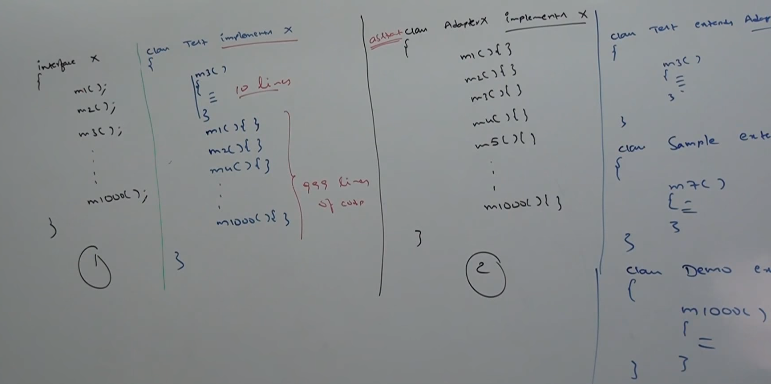 interface X
{
m1();
m2();
m3();
m1000();
}
1
class Test implements X
{
m3()
{
10 lines
}
m1(){ }
m2(){ }
m4(){ }
m1000(){ }
999 lines
of code
}
abstract class AdapterX implements X
{
m1(){ }
m2(){ }
m3(){ }
m4(){ }
m5(){ }
m1000(){ }
}
2
class Test extends Adap
{
m3()
{
}
}
class Sample exte
{
m7()
{
}
}
class Demo ex
{
m1000()
{
}
}